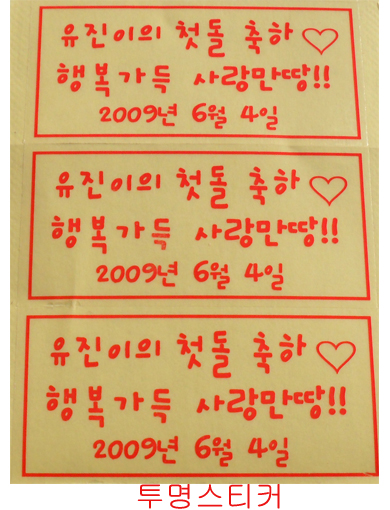 유진이의 첫돌 축하♡
행복가득 사랑만땅!!
2009년 6월 4일
유진이의 첫돌 축하♡
행복가득 사랑만땅!!
2009년 6월 4일
유진이의 첫돌 축하♡
행복가득 사랑만땅!!
2009년 6월 4일
투명스티커